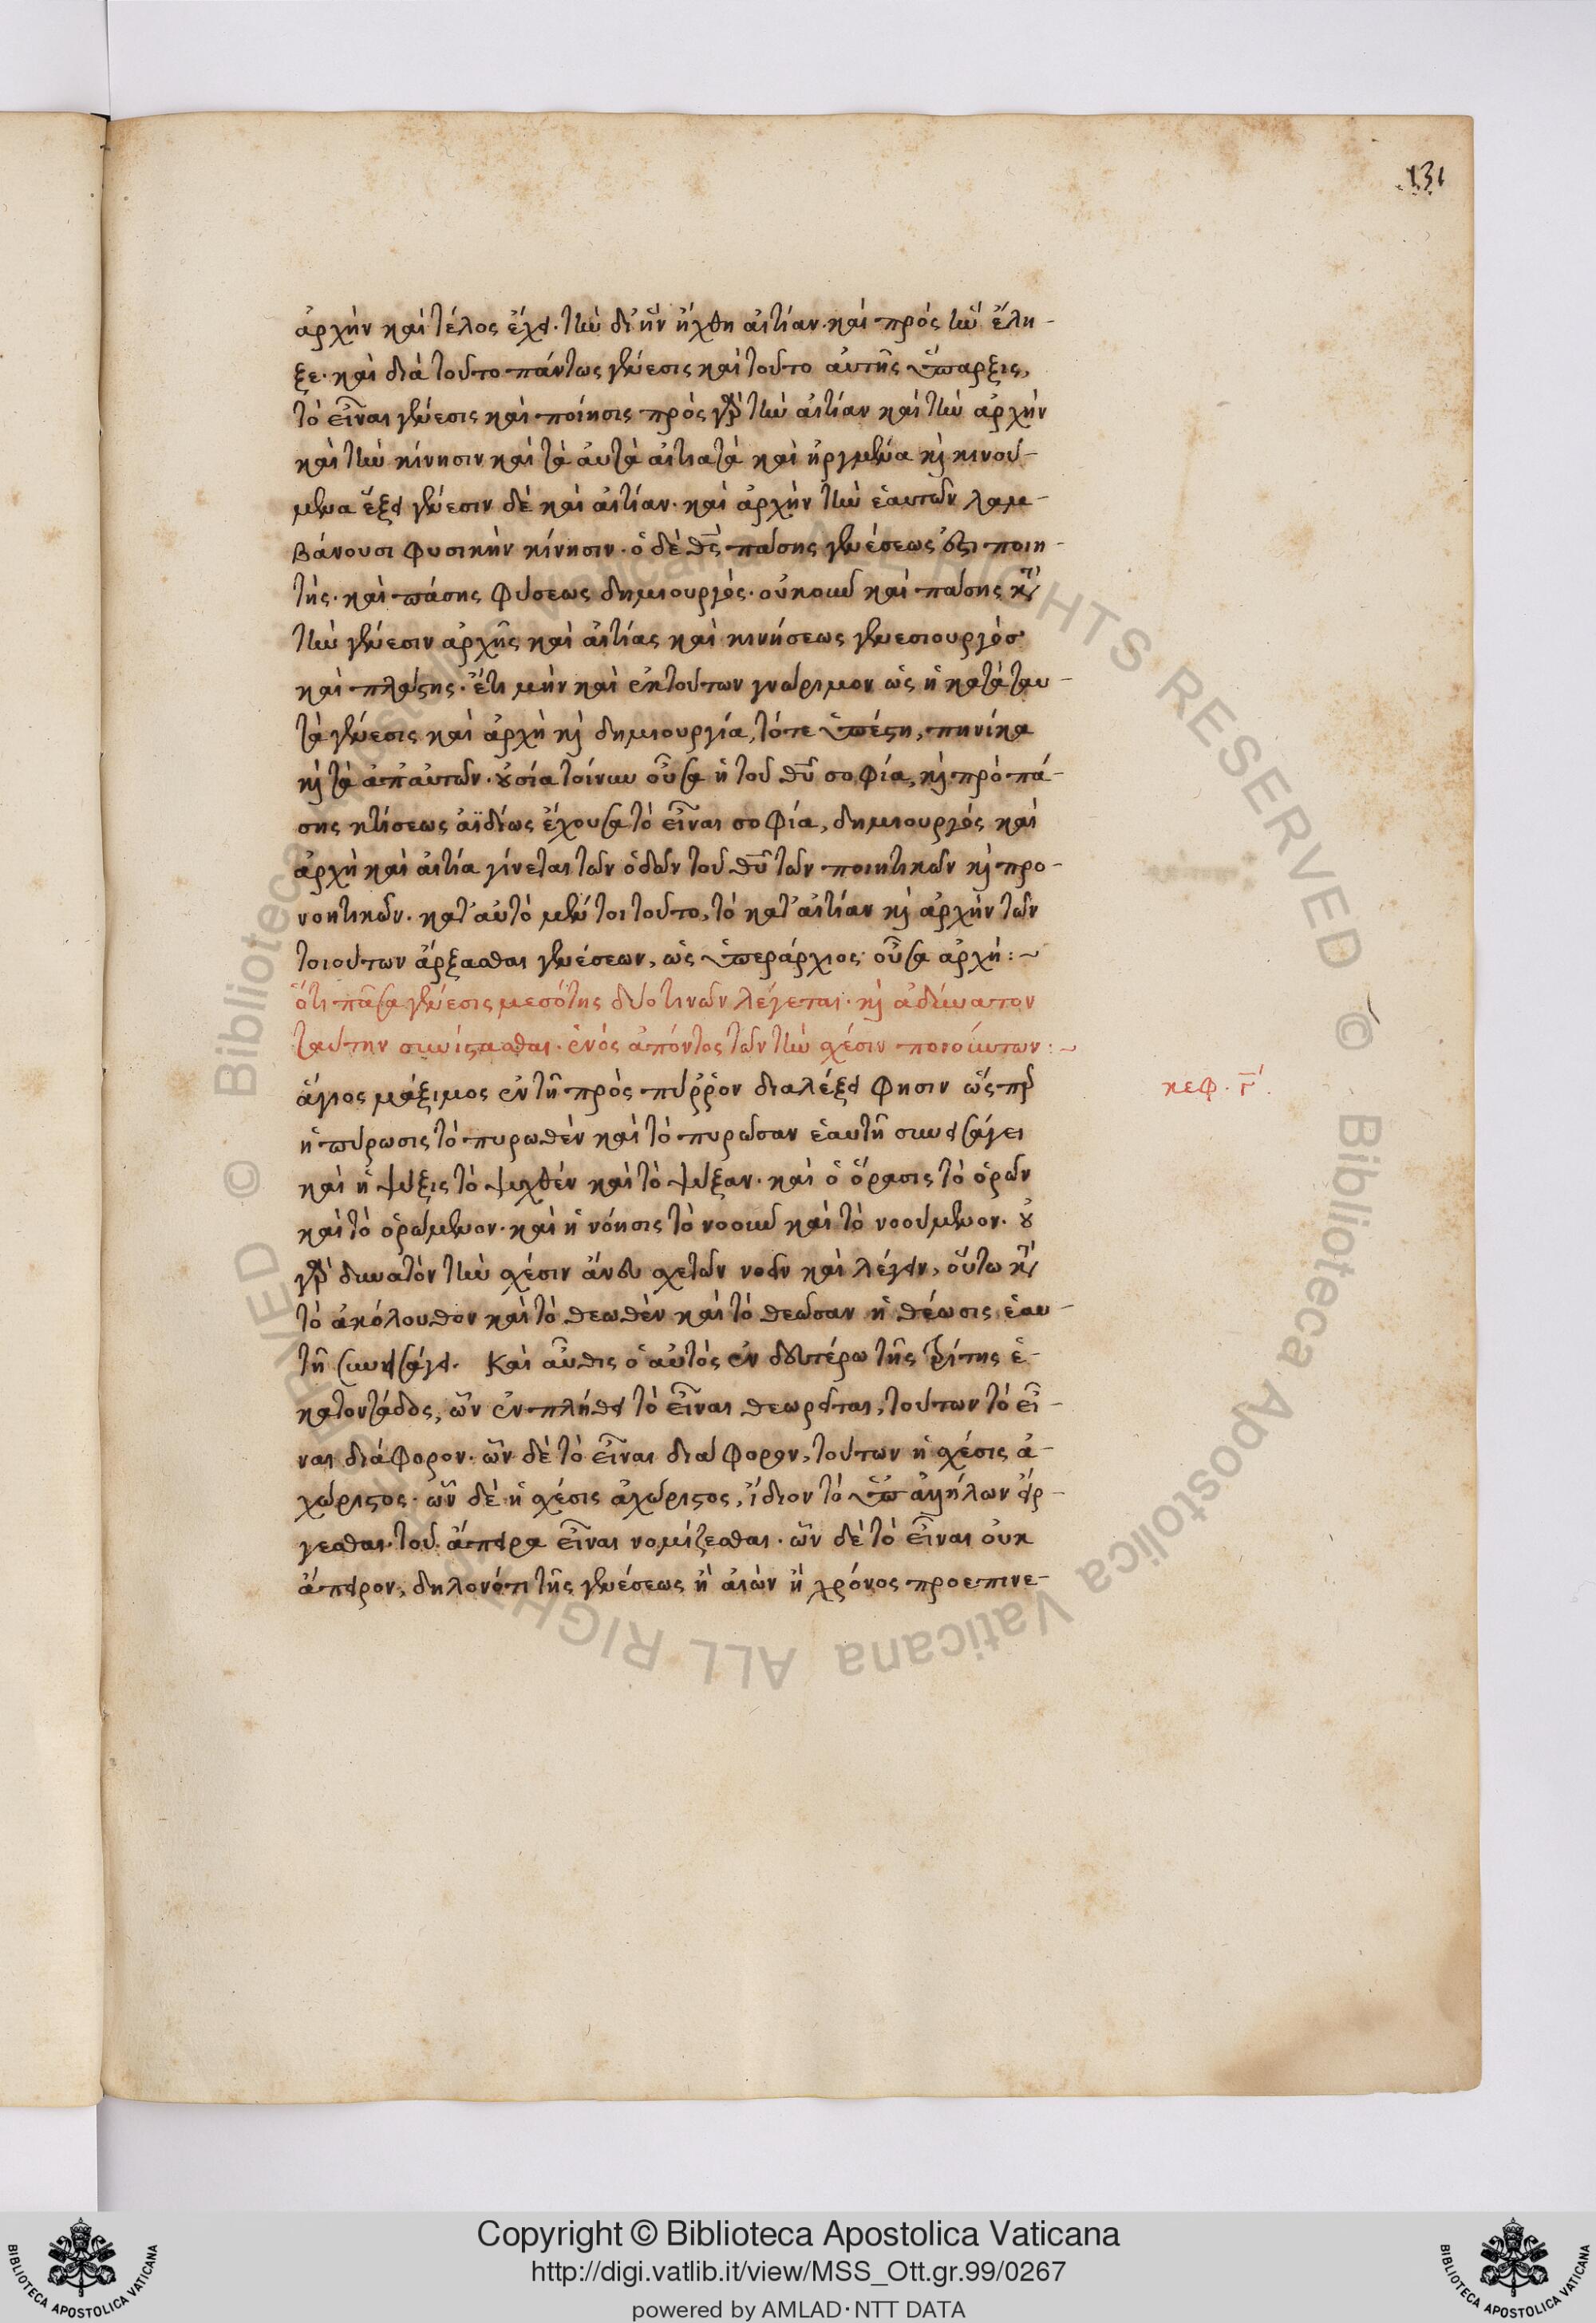 131
ἀρχὴν καὶ τέλος ἔχει. τὴν δι' ἣν ἤχθη αἰτίαν. καὶ πρὸς ἣν ἔλη-
ξε. καὶ διὰ τοῦτο πάντως γένεσις καὶ τοῦτο αὐτῆς ὕπαρξις,
τὸ εἶναι γένεσις καὶ ποίησις πρὸς γὰρ τὴν αἰτίαν καὶ τὴν ἀρχὴν
καὶ τὴν κίνησιν καὶ τὰ αὐτὰ αἰτιατὰ καὶ ἠργμένα καὶ κινού-
μενα ἕξει γένεσιν δὲ καὶ αἰτίαν. καὶ ἀρχὴν τὴν ἑαυτῶν λαμ-
βάνουσι φυσικὴν κίνησιν. ὁ δὲ θς πάσης γενέσεως ἐστι ποιη-
τής. καὶ πάσης φύσεως δημιουργός. οὐκοῦν καὶ πάσης κατὰ
τὴν γένεσιν ἀρχῆς καὶ αἰτίας καὶ κινήσεως γενεσιουργὸς
καὶ πλάστης. ἔτι μὴν καὶ ἐκ τούτων γνώριμον ὡς ἡ κατὰ ταυ-
τὰ γένεσις καὶ ἀρχὴ καὶ δημιουργία, τότε ὑπέστη, πηνίκα
καὶ τὰ ἀπ' αὐτῶν. οὐσία τοίνυν οὖσα ἡ τοῦ θῦ σοφία, καὶ πρὸ πά-
σης κτίσεως ἀϊδίως ἔχουσα τὸ εἶναι σοφία, δημιουργὸς καὶ
ἀρχὴ καὶ αἰτία γίνεται τῶν ὁδῶν τοῦ θῦ τῶν ποιητικῶν καὶ προ-
νοητικῶν. κατ' αὐτὸ μέντοι τοῦτο, τὸ κατ' αἰτίαν καὶ ἀρχὴν τῶν
τοιούτων ἄρξασθαι γενέσεων, ὡς ὑπεράρχιος οὖσα ἀρχή: ~
ὅτι πᾶσα γένεσις μεσότης δύο τινῶν λέγεται. καὶ ἀδύνατον
ταύτην συνίστασθαι. ἑνὸς ἀπόντος τῶν τὴν σχέσιν ποιούντων: ~
ἅγιος μάξιμος ἐν τῇ πρὸς πύρρον διαλέξει φησιν ὥσπερ
κεφ. γ'.
ἡ πύρωσις τὸ πυρωθὲν καὶ τὸ πυρῶσαν ἑαυτῇ συνεισάγει
καὶ ἡ ψύξις τὸ ψυχθὲν καὶ τὸ ψύξαν. καὶ ὁ ὅρασις τὸ ὁρῶν
καὶ τὸ ὁρώμενον. καὶ ἡ νόησις τὸ νοοῦν καὶ τὸ νοούμενον. οὐ
γὰρ δυνατὸν τὴν σχέσιν ἄνευ σχετῶν νοεῖν καὶ λέγειν, οὕτω κατὰ
τὸ ἀκόλουθον καὶ τὸ θεωθὲν καὶ τὸ θεῶσαν ἡ θέωσις ἑαυ-
τῇ συνεισάγει. Καὶ αὖθις ὁ αὐτὸς ἐν δευτέρω τῆς τρίτης ἑ-
κατοντάδος, ὧν ἐν πλήθει τὸ εἶναι θεωρεῖται, τούτων τὸ εἶ-
ναι διάφορον. ὧν δὲ τὸ εἶναι διάφορον, τούτων ἡ σχέσις ἀ-
χώριστος. ὧν δὲ ἡ σχέσις ἀχώριστος, ἴδιον τὸ ὑπ' ἀλλήλων εἴρ-
γεσθαι τοῦ ἄπειρα εἶναι νομίζεσθαι. ὧν δὲ τὸ εἶναι οὐκ
ἄπειρον, δηλονότι τῆς γενέσεως ἢ αἰὼν ἢ χρόνος προεπινε-
Copyright © Biblioteca Apostolica Vaticana
http://digi.vatlib.it/view/MSS_Ott.gr.99/0267
powered by AMLAD · NTT DATA